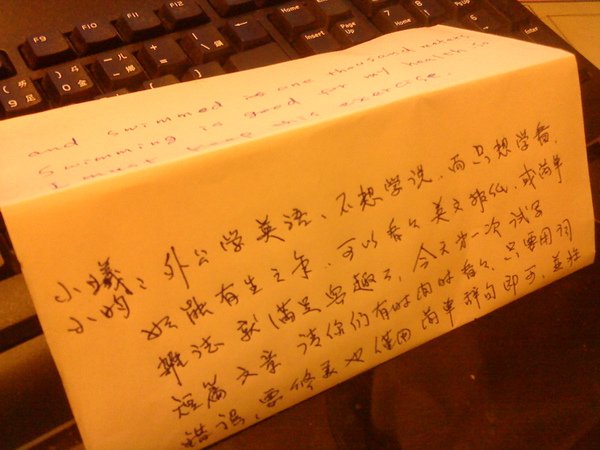 F9 F10 F11 F12
Home
End
Insert
Page Up
Page Down
Enter
and swimmed one thousand meters.
Swimming is good for my health so
I must keep this exercise.
小曦: 外公学英语、不想学说,而只想学看,
小昀: 如能有生之年,可以看看英文报纸,或简单
雜誌就满足兴趣了,今天第一次试写
短篇文章 请你们有时间时看看,只要用词
错误,要修正也使用简单辞句即可,